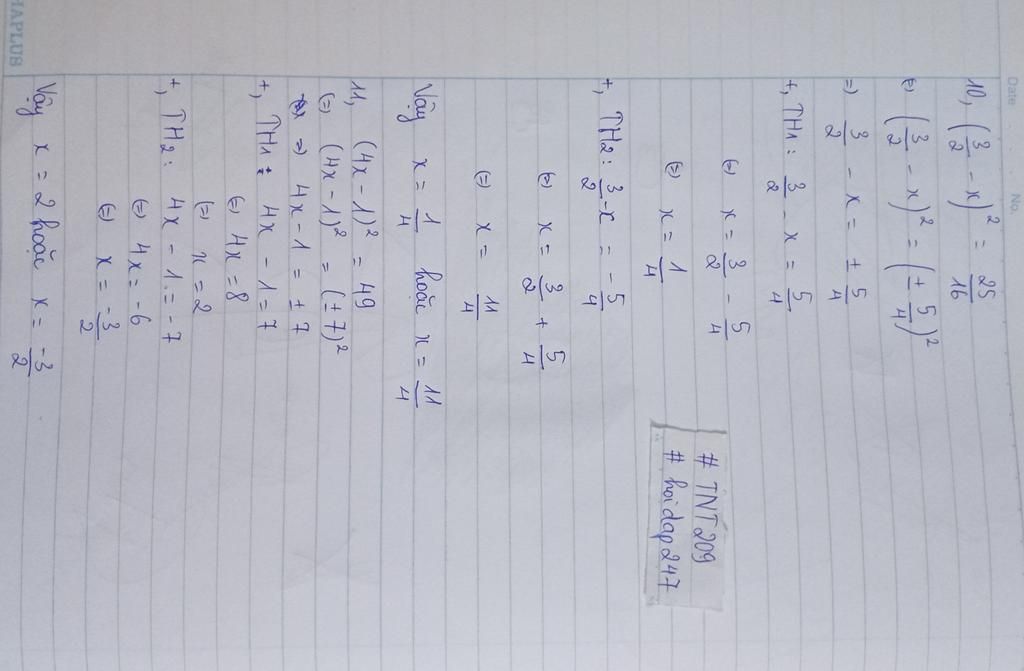 Date No.
10, (3/2 - x)² = 25/16
(=) (3/2 - x)² = (± 5/4)²
=) 3/2 - x = ± 5/4
+, TH1: 3/2 - x = 5/4
(=) x = 3/2 - 5/4
(=) x = 1/4
+, TH2: 3/2 - x = - 5/4
(=) x = 3/2 + 5/4
(=) x = 11/4
Vậy x = 1/4 hoặc x = 11/4
11, (4x - 1)² = 49
(=) (4x - 1)² = (± 7)²
=) 4x - 1 = ± 7
+, TH1: 4x - 1 = 7
(=) 4x = 8
(=) x = 2
+, TH2: 4x - 1 = - 7
(=) 4x = - 6
(=) x = -3/2
Vậy x = 2 hoặc x = -3/2
# TNT 209
# hoidap 247